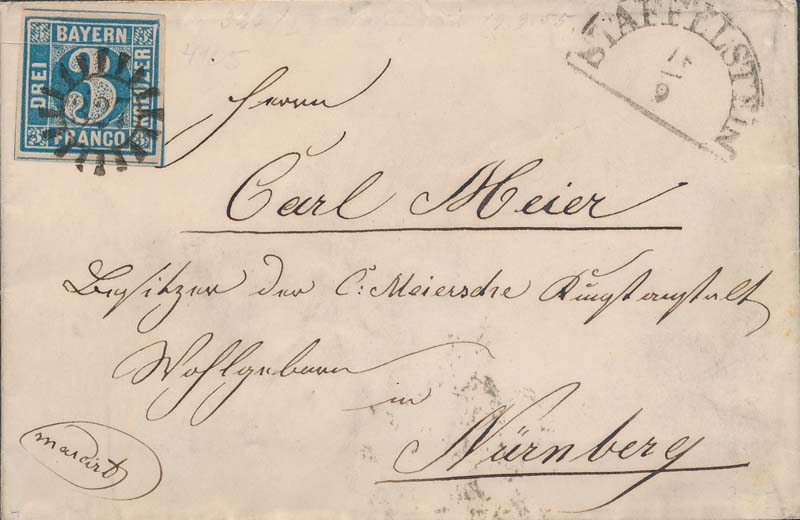 BAYERN
DREI
3
KREUZER
FRANCO
STAFFELSTEIN
9
Herrn
Carl Meier
Besitzer der C: Meiersche Kunstanstalt
Wohlgeborn
in
Nürnberg